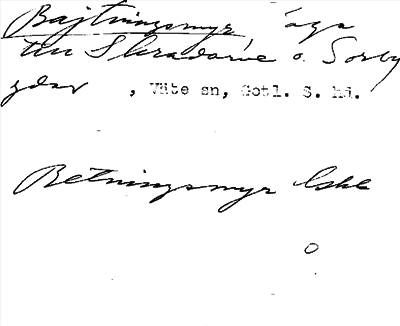 Bajtningsmyr äga
till Skradarve o. Sorby
gdar , Väte sn, Gotl. S. hd.
Betningsmyr